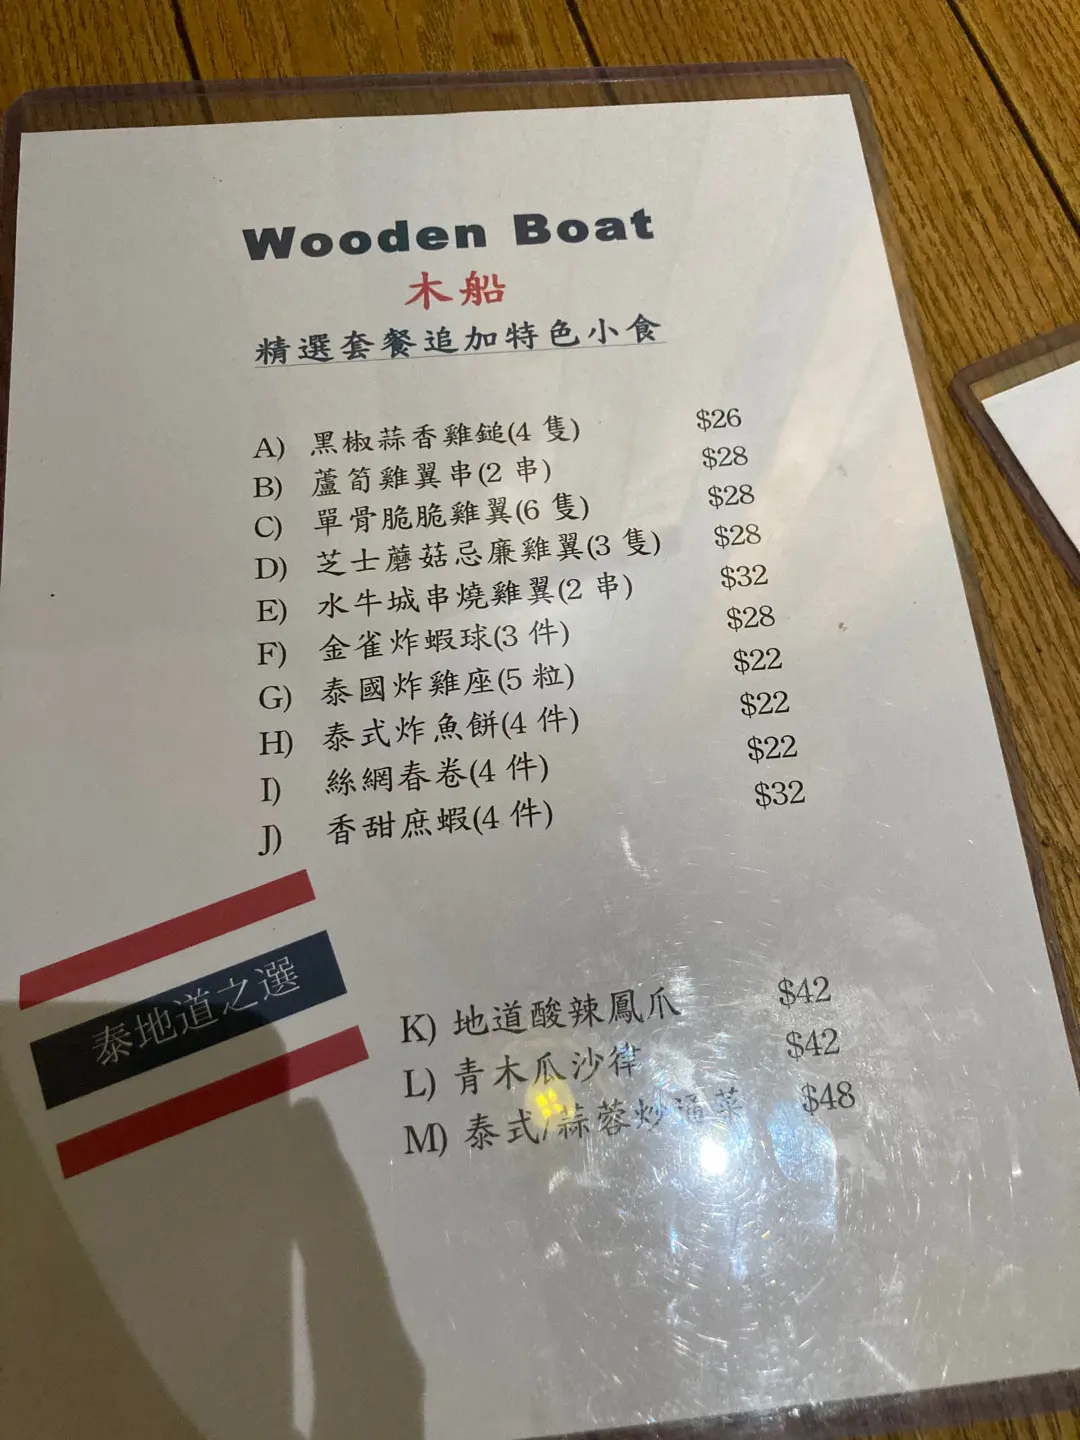 Wooden Boat
木船
精選套餐追加特色小食
A) 黑椒蒜香雞鎚(4 隻) $26
B) 蘆筍雞翼串(2 串) $28
C) 單骨脆脆雞翼(6 隻) $28
D) 芝士蘑菇忌廉雞翼(3 隻) $28
E) 水牛城串燒雞翼(2 串) $32
F) 金雀炸蝦球(3 件) $28
G) 泰國炸雞座(5 粒) $22
H) 泰式炸魚餅(4 件) $22
I) 絲網春卷(4 件) $22
J) 香甜庶蝦(4 件) $32
泰地道之選
K) 地道酸辣鳳爪 $42
L) 青木瓜沙律 $42
M) 泰式/蒜蓉炒通菜 $48